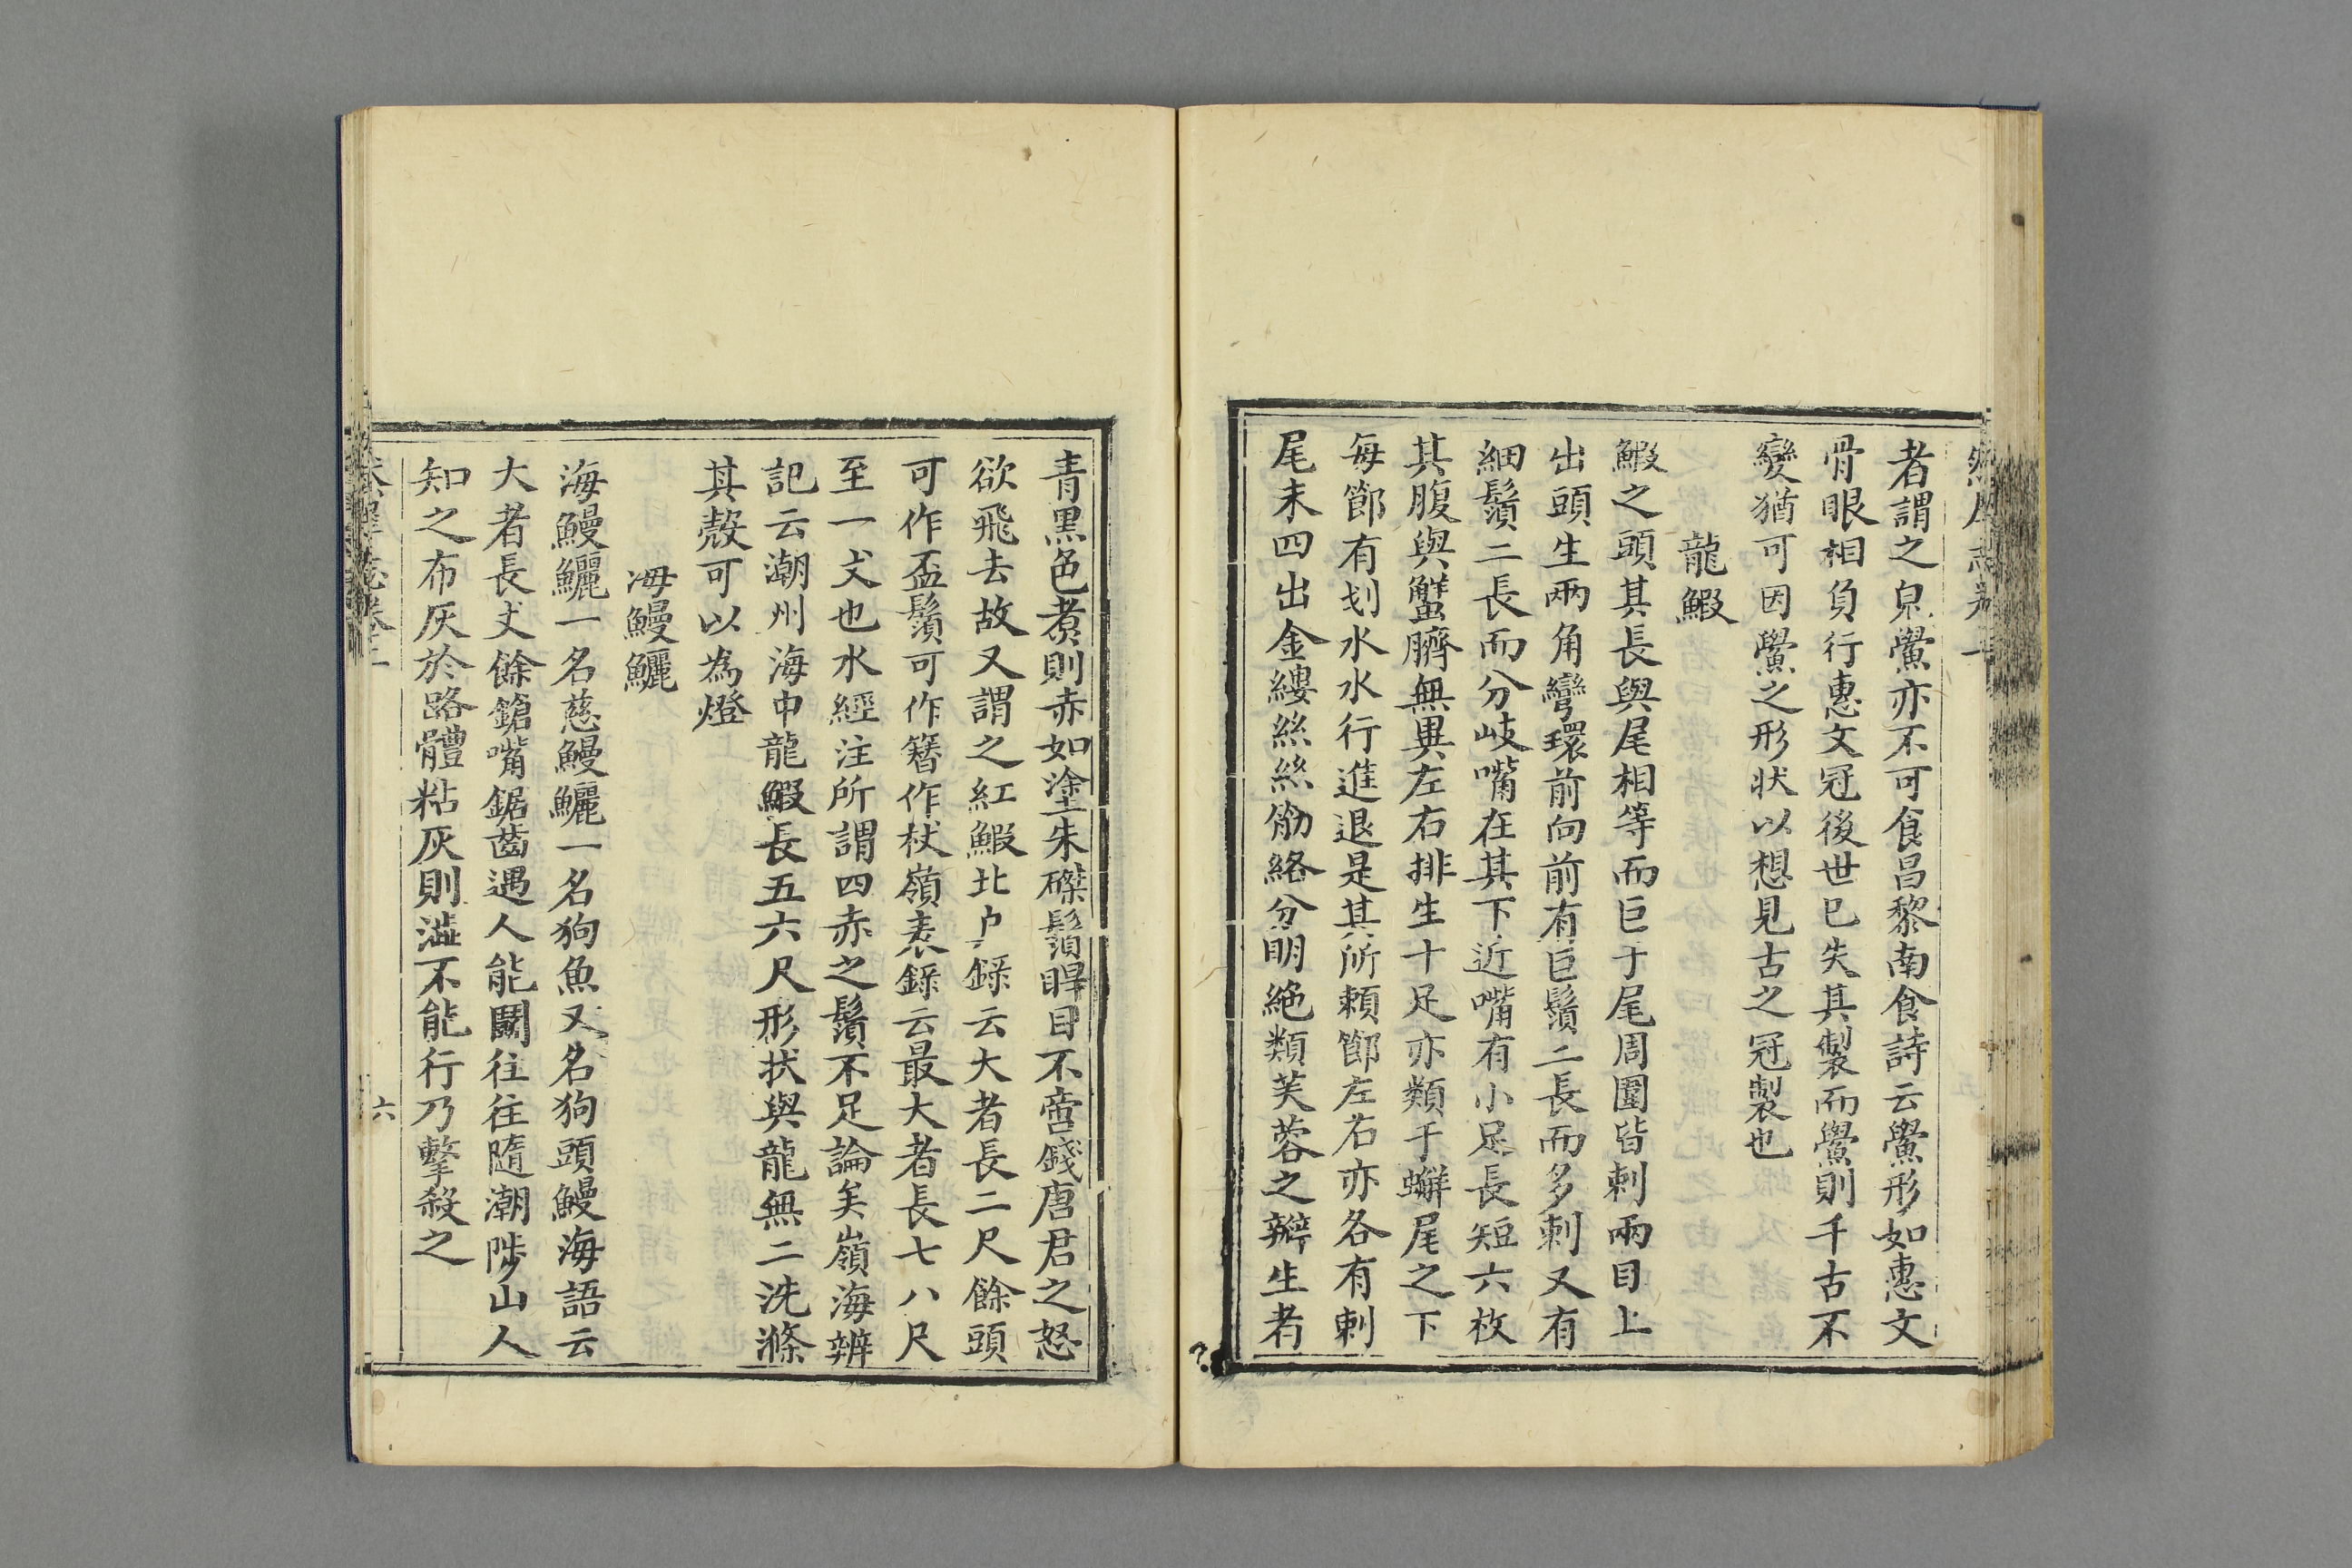 者謂之鬼鱟亦不可食昌黎南食詩云鱟形如惠文
骨眼相負行惠文冠後世已失其製而鱟則千古不
變猶可因鱟之形狀以想見古之冠製也
龍鰕
鰕之頭其長與尾相等而巨于尾周圍皆刺兩目上
出頭生兩角彎環前向前有巨鬚二長而多刺又有
細鬚二長而分岐嘴在其下近嘴有小足長短六枚
其腹與蟹臍無異左右排生十足亦類于蠏尾之下
每節有划水水行進退是其所賴節左右亦各有刺
尾末四出金縷絲絲觔絡分明絶類芙蓉之瓣生者
青黑色煮則赤如塗朱磔鬚睅目不啻錢唐君之怒
欲飛去故又謂之紅鰕北户録云大者長二尺餘頭
可作盃鬚可作簪作杖嶺表録云最大者長七八尺
至一丈也水經注所謂四赤之鬚不足論矣嶺海辨
記云潮州海中龍鰕長五六尺形状與龍無二洗滌
其殼可以為燈
海鰻鱺
海鰻鱺一名慈鰻鱺一名狗魚又名狗頭鰻海語云
大者長丈餘鎗嘴鋸齒遇人能鬭往往隨潮陟山人
知之布灰於路體粘灰則澁不能行乃擊殺之
六